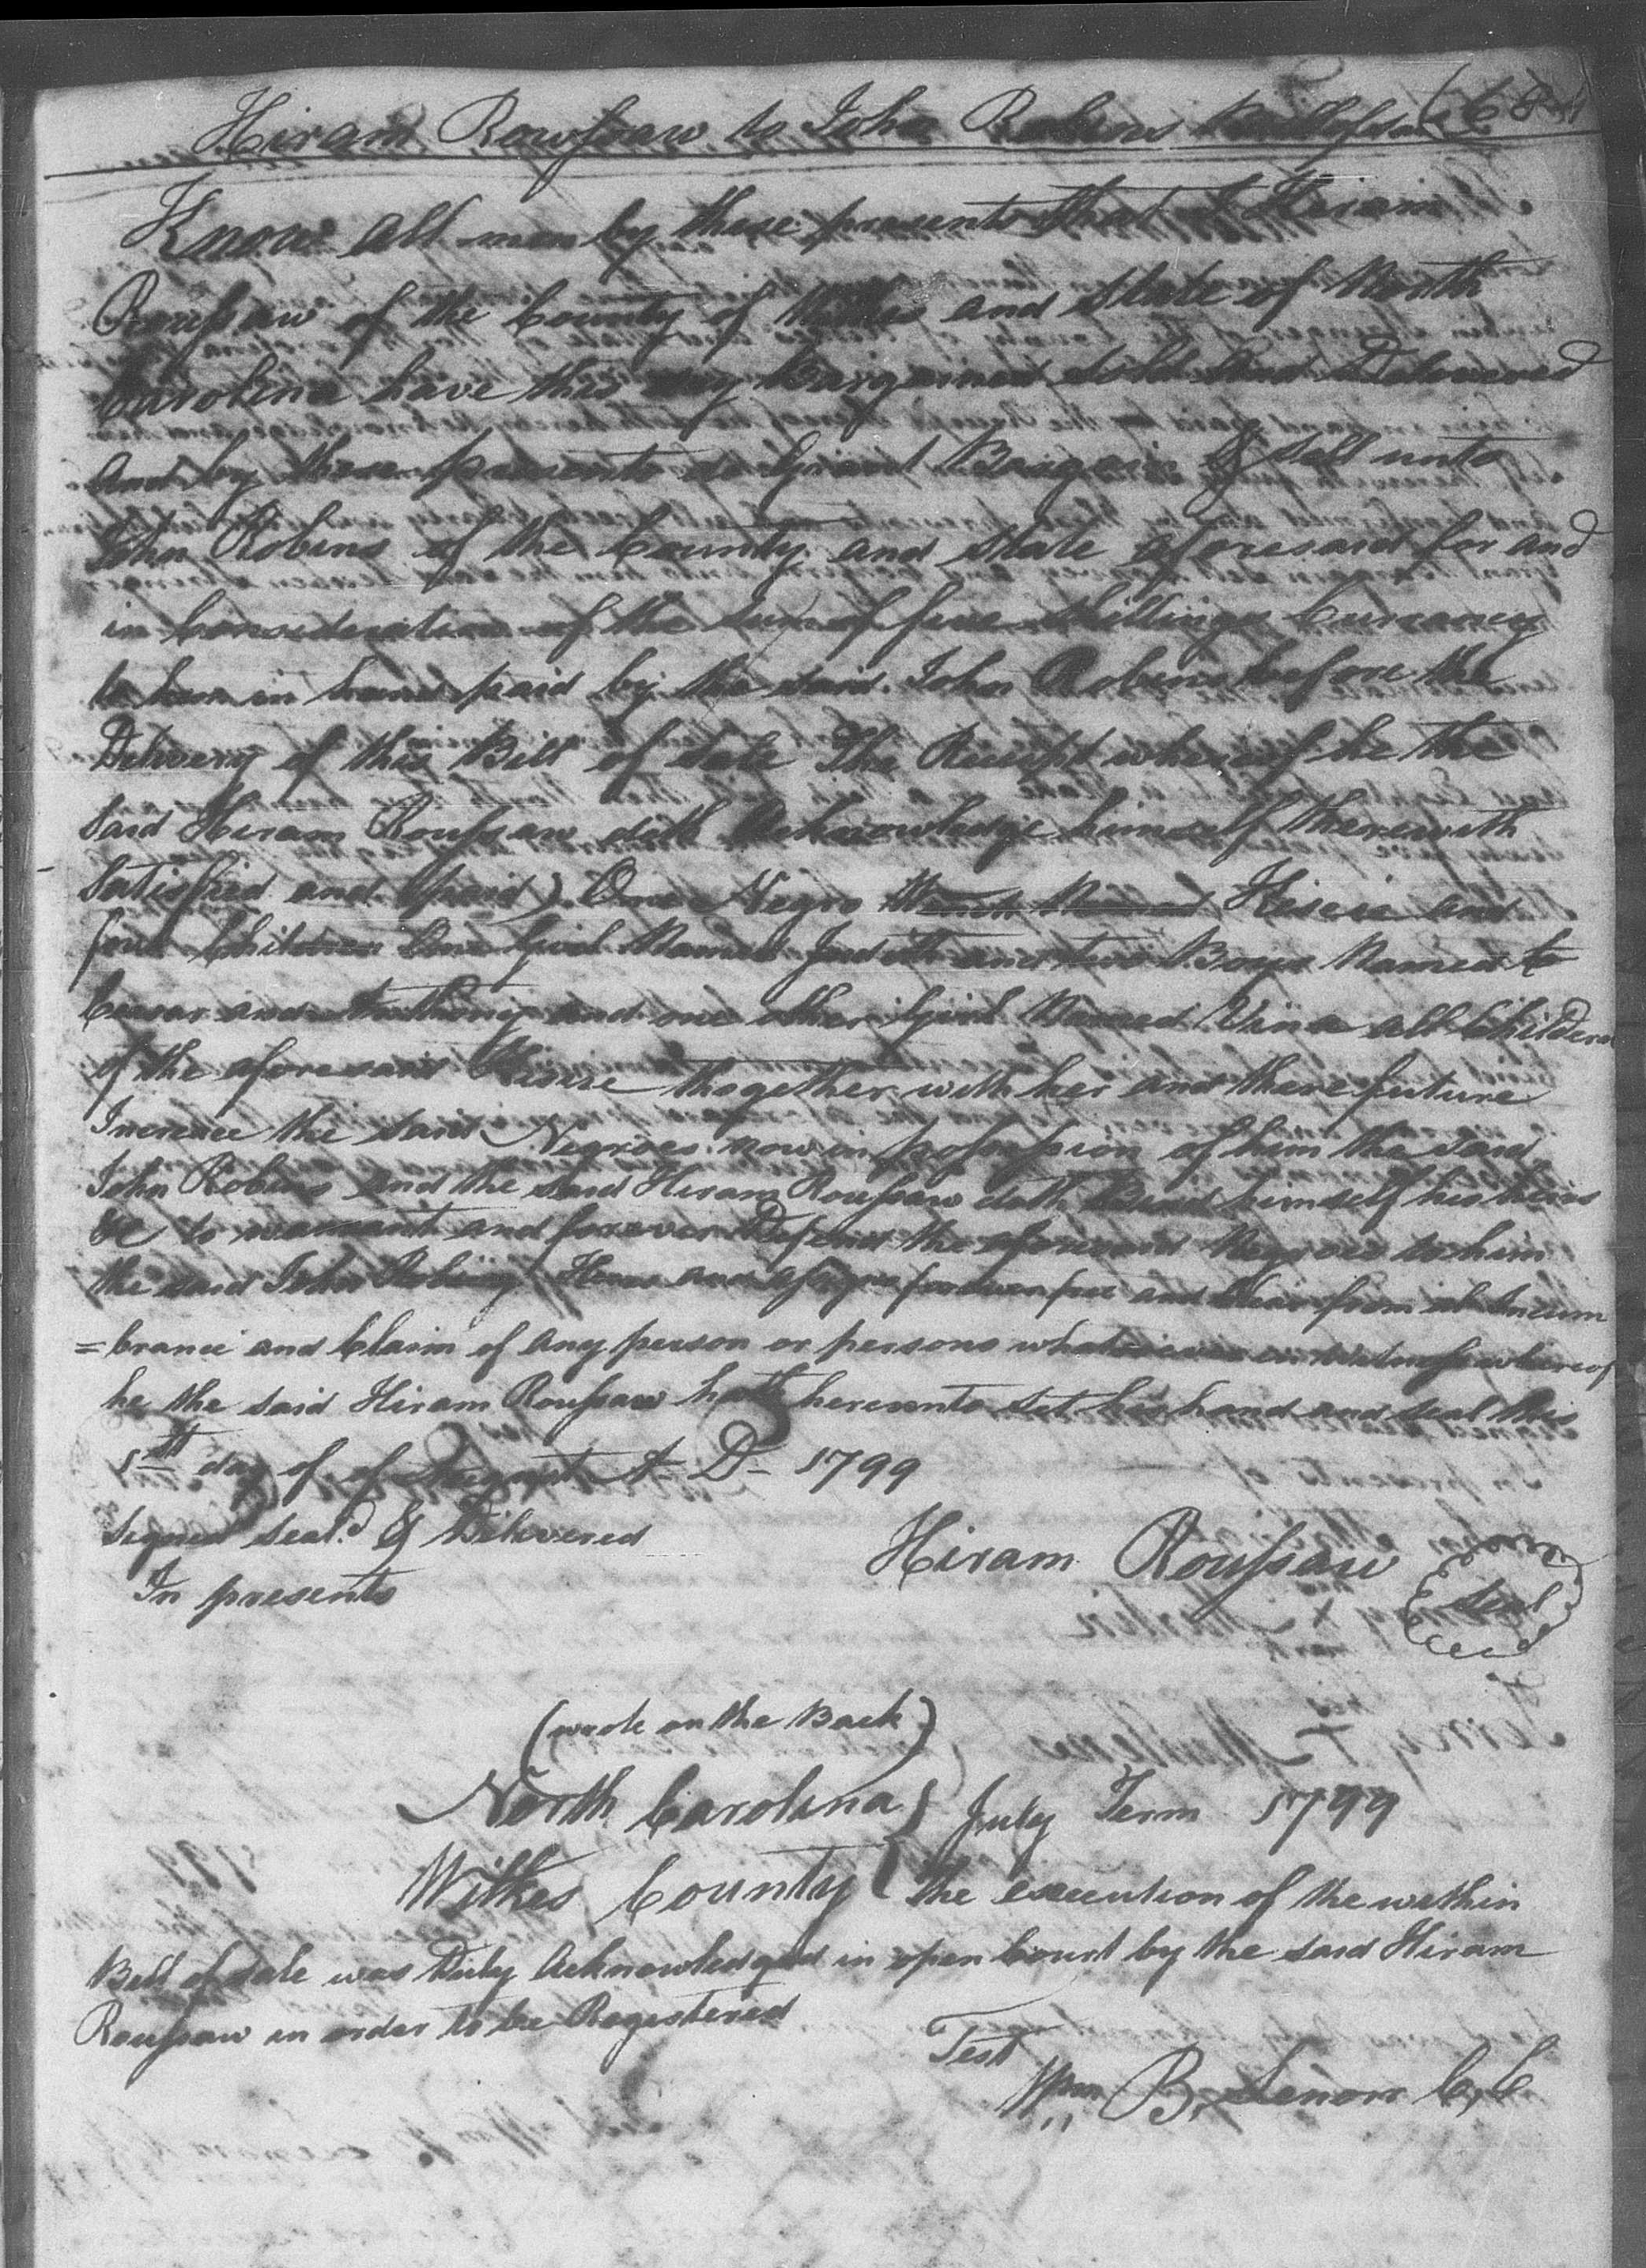 Hiram Rowssaw to John Robins Bill of Sale
Know all men by these presents that I Hiram
Roussaw of the County of Wilkes and State of North
Carolina have this day Bargained Sold And Delivered
And by these presents do Grant Bargain & Sell unto
John Robins of the County and State aforesaid for and
in Consideration of the Sum of five Shillings Currancy
to him in hand paid by the said John Robins before the
Delivery of this Bill of Sale The Receipt whereof he the
said Hiram Roussaw doth Acknowledge himself therewith
Satisfied and paid) One Negro Wench Named and
four Children One Girl Named Judith and two Boys Named to
Ceasar and Anthony and one other Girl Named Vina all Children
of the aforesaid thogether with her and there future
Increace the said Negroes now in possession of him the said
John Robins and the said Hiram Roussaw doth Bind himself his heirs
&c to warrant and forever Defend the aforesaid Negroes to him
the said John Robins Heirs and assigns forever free and Clear from al Incum
=brance and Claim of any person or persons whatsoever in witness whereof
he the said Hiram Roussaw hath hereunto Set his hand and seal this
1st day of of August A D - 1799
Signed Seal.d & Delivered
In presents
Hiram Roussaw
Seal
(wrote on the Back)
North Carolina } July Term 1799
Wilkes County } The execution of the within
Bill of Sale was Duly Acknowledged in open Court by the said Hiram
Roussaw in order to be Registered
Test
Wm B. Lenoir C, C